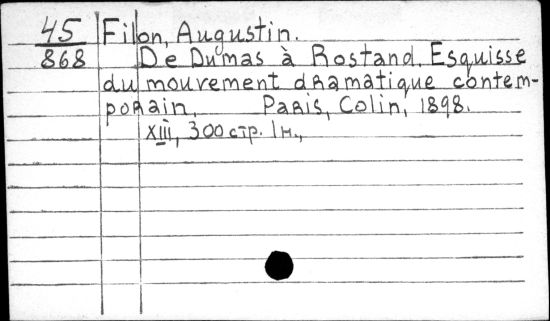 45 Filon, Augustin.
868 De Dumas à Rostand. Esquisse
du mouvement dramatique contem-
porain, Paris, Colin, 1898.
XIII, 300 стр. 1 н.,